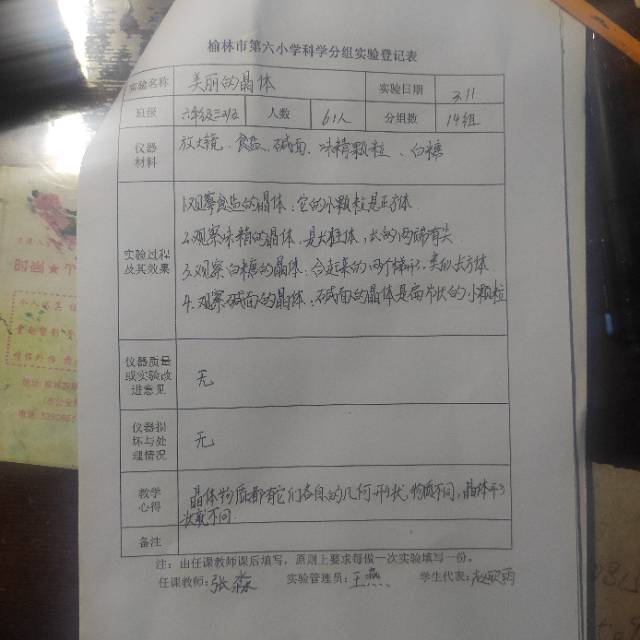 榆林市第六小学科学分组实验登记表
实验名称 美丽的晶体 实验日期 3.11
班级 人数 61人 分组数 14组
仪器材料 放大镜、食盐、碱面、味精颗粒、白糖
实验过程及其效果
1.观察食盐的晶体,它的小颗粒是正方体
2.观察味精的晶体,是大柱体,长的两端有尖
3.观察白糖的晶体,合起来的两个梯形,类似长方体
4.观察碱面的晶体,碱面的晶体是扁片状的小颗粒
仪器质量或实验改进意见 无
仪器损坏与处理情况 无
教学心得 晶体物质都有它们各自的几何形状,物质不同,晶体形
状就不同
备注
注:由任课教师课后填写,原则上要求每做一次实验填写一份。
任课教师:张森 实验管理员:王燕 学生代表:赵